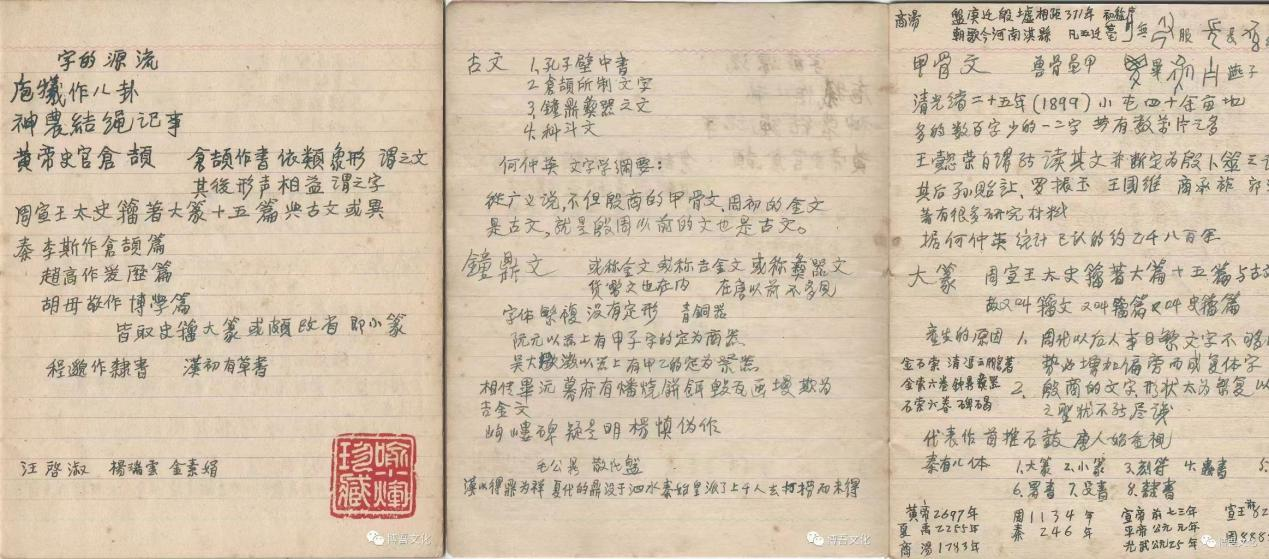 字的源流
庖犧作八卦
神農結绳记事
黄帝史官倉頡 倉頡作書依類象形 谓之文
其後形声相益谓之字
周宣王太史籀著大篆十五篇與古文或異
秦李斯作倉頡篇
趙高作爰歷篇
胡毋敬作博學篇
皆取史籀大篆或頗改省 即小篆
程邈作隸書 漢初有草書
汪啓淑 楊瑞雲 金素娟
古文 1.孔子壁中書
2.倉頡所制文字
3.鐘鼎彝器之文
4.科斗文
何仲英 文字学綱要:
從广义说,不但殷商的甲骨文、周初的金文
是古文,就是殷周以前的文也是古文。
鐘鼎文 或称金文或称吉金文或称彝器文
货幣文也在内 在唐以前不多見
字体繁複没有定形 青銅器
阮元以器上有甲子字的定为商器
吴大澂以器上有甲乙的定为
相传畢沅幕府有燔烧餅餌毀瓦画墁欺为
吉金文
岣嶁碑疑是明楊慎伪作
毛公鼎 散氏盤
漢以得鼎为祥 夏代的鼎没于泗水秦始皇派了上千人去打捞而未得
商湯 盤庚迁殷墟相距371年
朝歌今河南淇縣 凡五迁
甲骨文 兽骨龟甲 燕子
清光緒二十五年(1899)小屯四十余亩地
多的数百字少的一二字 共有数萬片之多
王懿荣自谓能读其文并断定为殷卜
其后孙貽让、罗振玉 王國维 商承祚 郭
著有很多研究材料
据何仲英统计已认的约乙千八百
大篆 周宣王太史籀著大篆十五篇与古
故又叫籀文 又叫籀篇又叫史籀篇
産生的原因 1.周代以后人事日繁文字不够
金石索 清馮云鹏著 势必增加偏旁而成复体字
金索六卷钟鼎彝器 2.殷商的文字,形状太为繁复
石索六卷碑碣 之
代表作首推石鼓 唐人始重視
秦有八体 1.大篆 2.小篆 3.刻符 4.蟲書 5.
6.署書 7.殳書 8.隸書
黄帝2697年 周1134年 宣帝前七三年 宣王前82
夏禹2255年 秦246年 平帝公元元年
商湯1783年 光武公元25年 周888
喻小輝珍藏
博吾文化
博吾文化
博吾文化